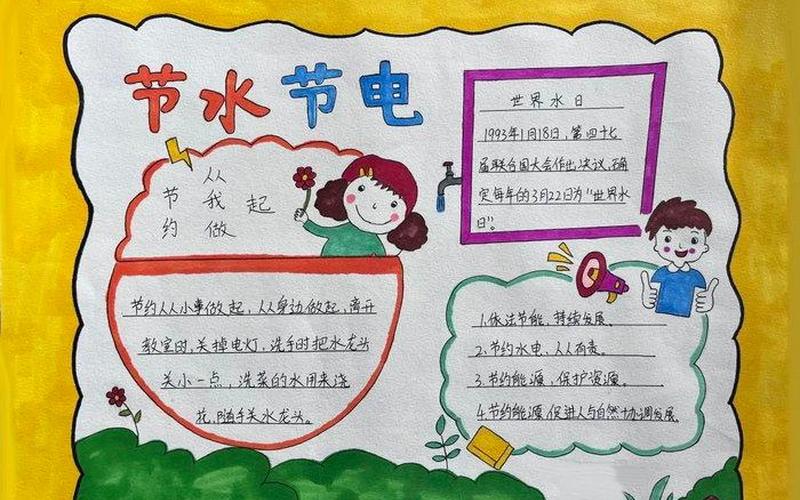 节水节电
从
节 我 起
约 做
节约从小事做起，从身边做起，离开
教室时，关掉电灯，洗手时把水龙头
关小一点，洗菜的水用来浇
花，随手关水龙头。
世界水日
1993年1月18日，第四十七
届联合国大会作出决议，确
定每年的3月22日为“世界水
日”。
1.依法节能，持续发展。
2.节约水电，人人有责。
3.节约能源，保护资源。
4.节约能源，促进人与自然协调发展。